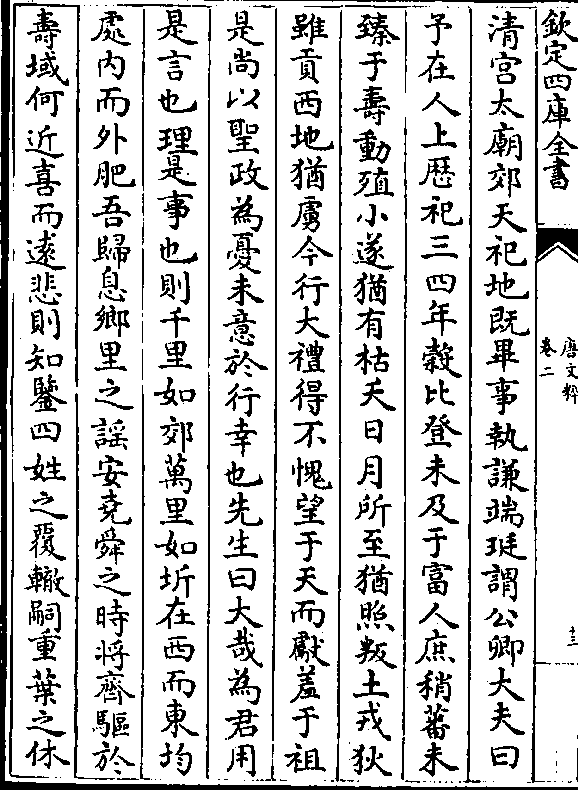 欽定四庫全書
唐文粹
卷二
十三
清宮太廟郊天祀地既畢事執謙端珽謂公卿大夫曰
予在人上歷祀三四年穀比登未及于富人庶稍蕃未
臻于壽動殖小遂猶有枯夭日月所至猶照叛土戎狄
雖貢西地猶虜今行大禮得不愧望于天而獻羞于祖
是尚以聖政為憂未意於行幸也先生曰大哉為君用
是言也理是事也則千里如郊萬里如圻在西而東均
處內而外肥吾歸息鄉里之謡安堯舜之時將齊驅於
壽域何近喜而遠悲則知鑒四姓之覆轍嗣重葉之休